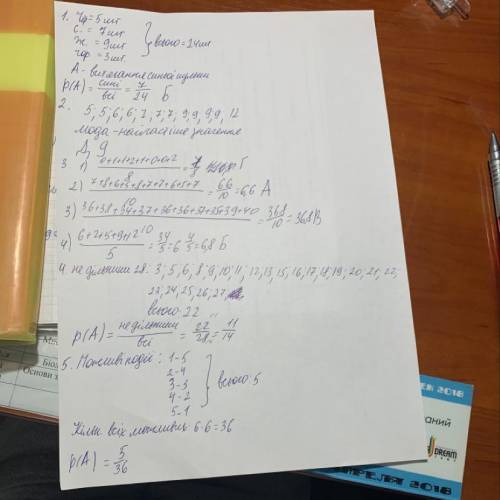 1. Чр = 5 шт
с. = 7 шт
ж. = 9 шт
чор = 3 шт.
всього = 24 шт
А - витягання синьої кульки
p(A) = сині/всі = 7/24 Б
2. 5, 5, 6, 6, 7, 7, 9, 9, 9, 9, 12
мода - найчастіше значення
Д, 9
3 1) 0+1+1+2+1+0+0+2/8 = 7/8
2) 7+8+6+5+8+7+7+6+5+7/10 = 66/10 = 6,6 А
3) 36+38+34+37+36+36+37+35+39+40/10 = 368/10 = 36,8 В
4) 6+2+5+9+12/5 = 34/5 = 6 4/5 = 6,8 Б
4. не дільники 28: 3; 5, 6, 8, 9, 10, 11, 12, 13, 15, 16, 17, 18, 19, 20, 21, 22,
23, 24, 25, 26, 27,
всього 22
p(A) = не дільники/всі = 22/28 = 11/14
5. Можливі події: 1-5
2-4
3-3
4-2
5-1
всього: 5
Кільк. всіх можливих 6·6=36
p(A) = 5/36
Основи з
2018
DREAM
АПРЕЛЯ 2018